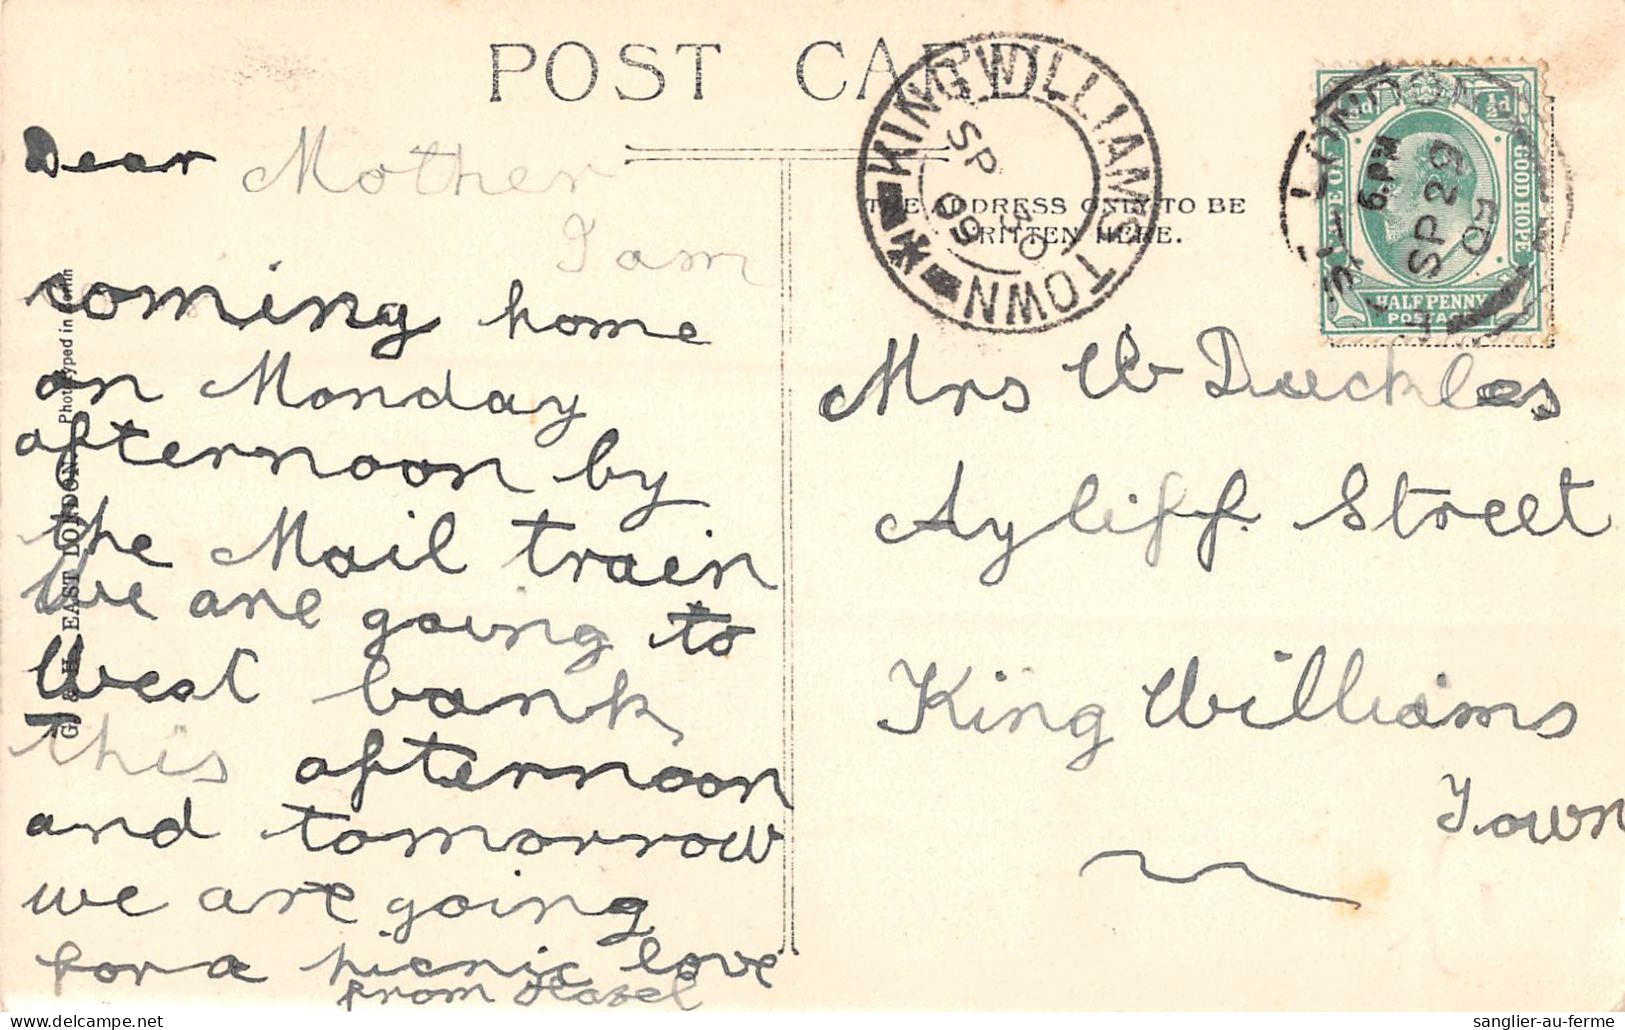 POST CARD
THE ADDRESS ONLY TO BE
WRITTEN HERE.
KINGWILLIAMSTOWN
SP
30
09
EAST LONDON
6.PM
SP 29
09
CAPE OF GOOD HOPE
HALF PENNY
POSTAGE
Dear Mother
I am
coming home
on Monday
afternoon by
the Mail train
we are going to
West bank
this afternoon
and tomorrow
we are going
for a picnic love
from Hazel
Mrs W Duckles
Ayliff Street
King Williams
Town
EAST LONDON
Phototyped in Berlin
sanglier-au-ferme